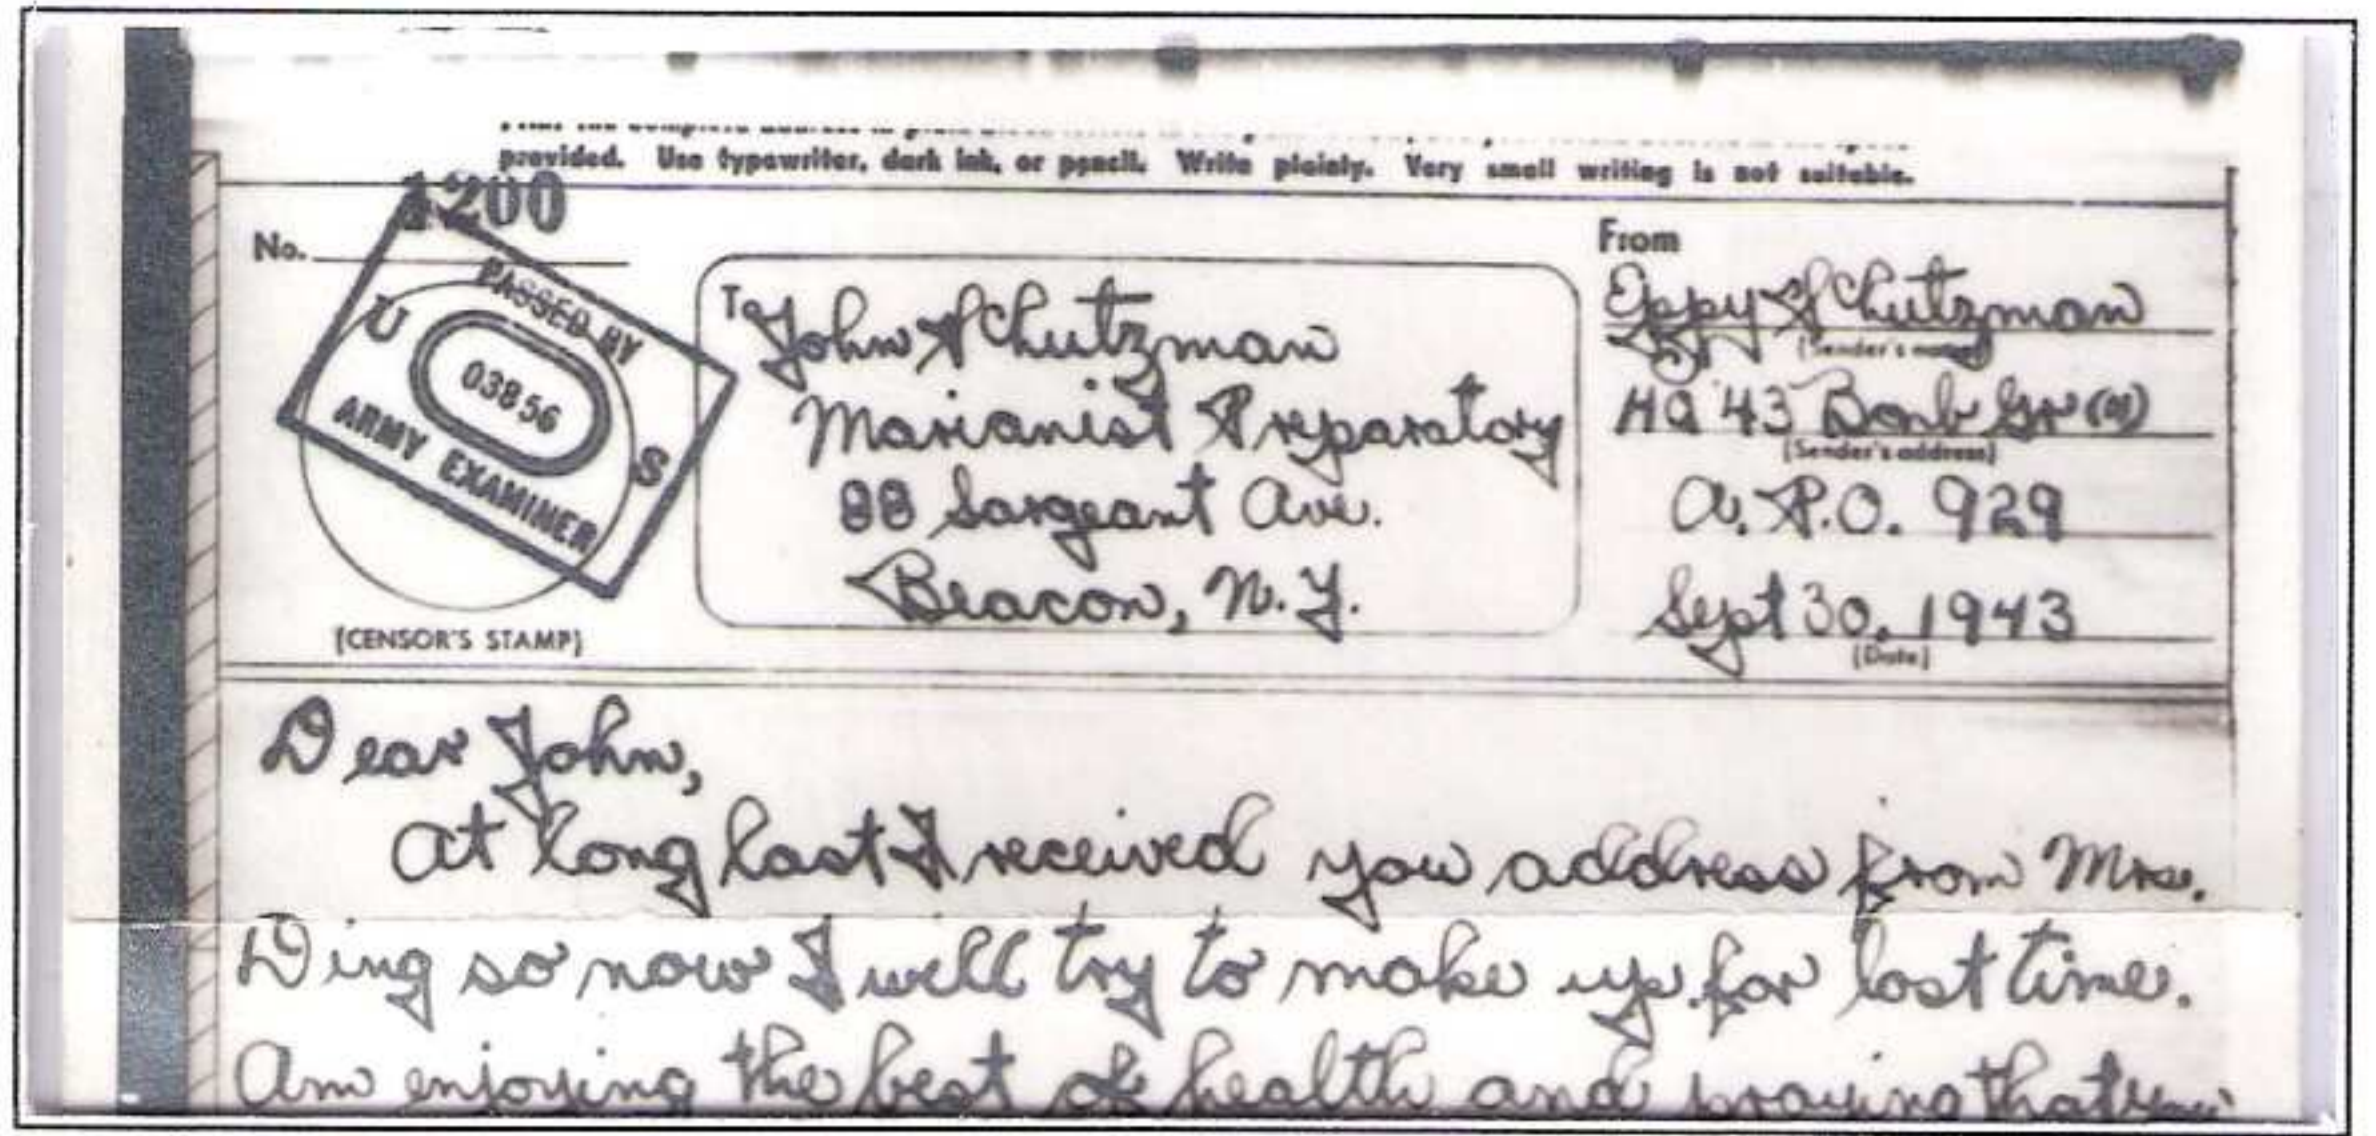 provided. Use typewriter, dark ink, or pencil. Write plainly. Very small writing is not suitable.
1200
No.
PASSED BY
U S
03856
ARMY EXAMINER
(CENSOR'S STAMP)
To John Schutzman
Marianist Preparatory
88 Sargeant Ave.
Beacon, N.Y.
From
Eppy Schutzman
(Sender's name)
HQ 43 Bomb Gr (H)
(Sender's address)
A.P.O. 929
Sept 30, 1943
(Date)
Dear John,
At long last I received you address from Mrs.
Ding so now I will try to make up for lost time.
Am enjoying the best of health and praying that you